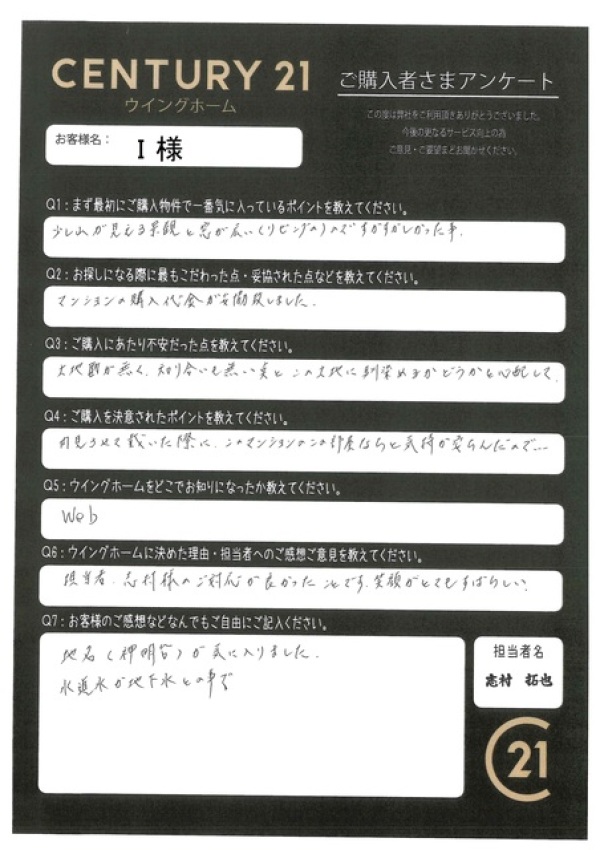 CENTURY 21
ウイングホーム
ご購入者さまアンケート
この度は弊社をご利用頂きありがとうございました。
今後の更なるサービス向上の為
ご意見・ご要望をお聞かせください。
お客様名: I 様
Q1:まず最初にご購入物件で一番気に入っているポイントを教えてください。
少し山が見える景観と窓が広い(リビングの)のですがすがしかった事.
Q2:お探しになる際に最もこだわった点・妥協された点などを教えてください。
マンションの購入代金が妥協致しました.
Q3:ご購入にあたり不安だった点を教えてください。
土地勘が悪く、知り合いも無い実とこの土地に馴染めるかどうかと心配して.
Q4:ご購入を決意されたポイントを教えてください。
内見させて戴いた際に、このマンションのこの部屋ならと気持が安らんだので…
Q5:ウイングホームをどこでお知りになったか教えてください。
Web
Q6:ウイングホームに決めた理由・担当者へのご感想ご意見を教えてください。
担当者、志村様のご対応が良かったことです.笑顔がとてもすばらしい.
Q7:お客様のご感想などなんでもご自由にご記入ください。
地名(神明台)が気に入りました.
水道水が地下水との事で
担当者名
志村 拓也
C21